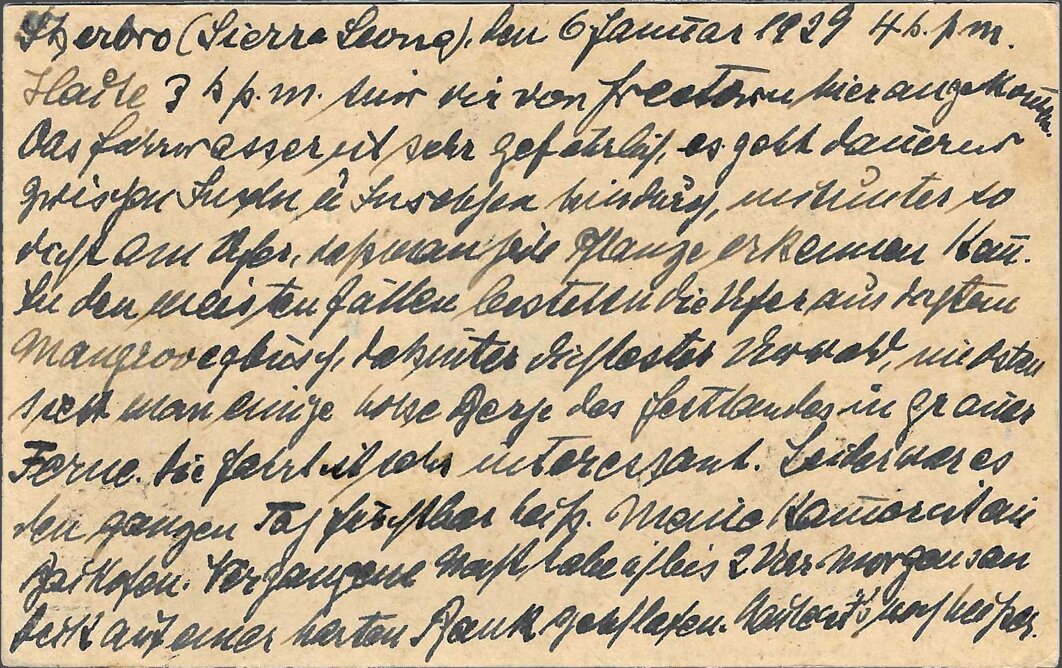 Sherbro (Sierra Leone), den 6 Januar 1929 4 h. p. m.
Heute 3 h p. m. sind wir von Freetown hier angekommen
Das Fahrwasser ist sehr gefährlich, es geht dauernd
zwischen Inseln u Inselchen hindurch, mitunter so
dicht am Ufer, daß man jede Pflanze erkennen kañ.
In den meisten Fällen bestehen die Ufer aus dichtem
Mangrovegebüsch, dahinter dichtester Urwald, im Osten
sieht man einige hohe Berge des Festlandes in grauer
Ferne. Die Fahrt ist sehr interessant. Leider war es
den ganzen Tag furchtbar heiß. Meine Kammer ist ein
Backofen. Vergangene Nacht habe ich bis 2 Uhr morgens an
Deck auf einer harten Bank geschlafen. Heute ists noch heißer.